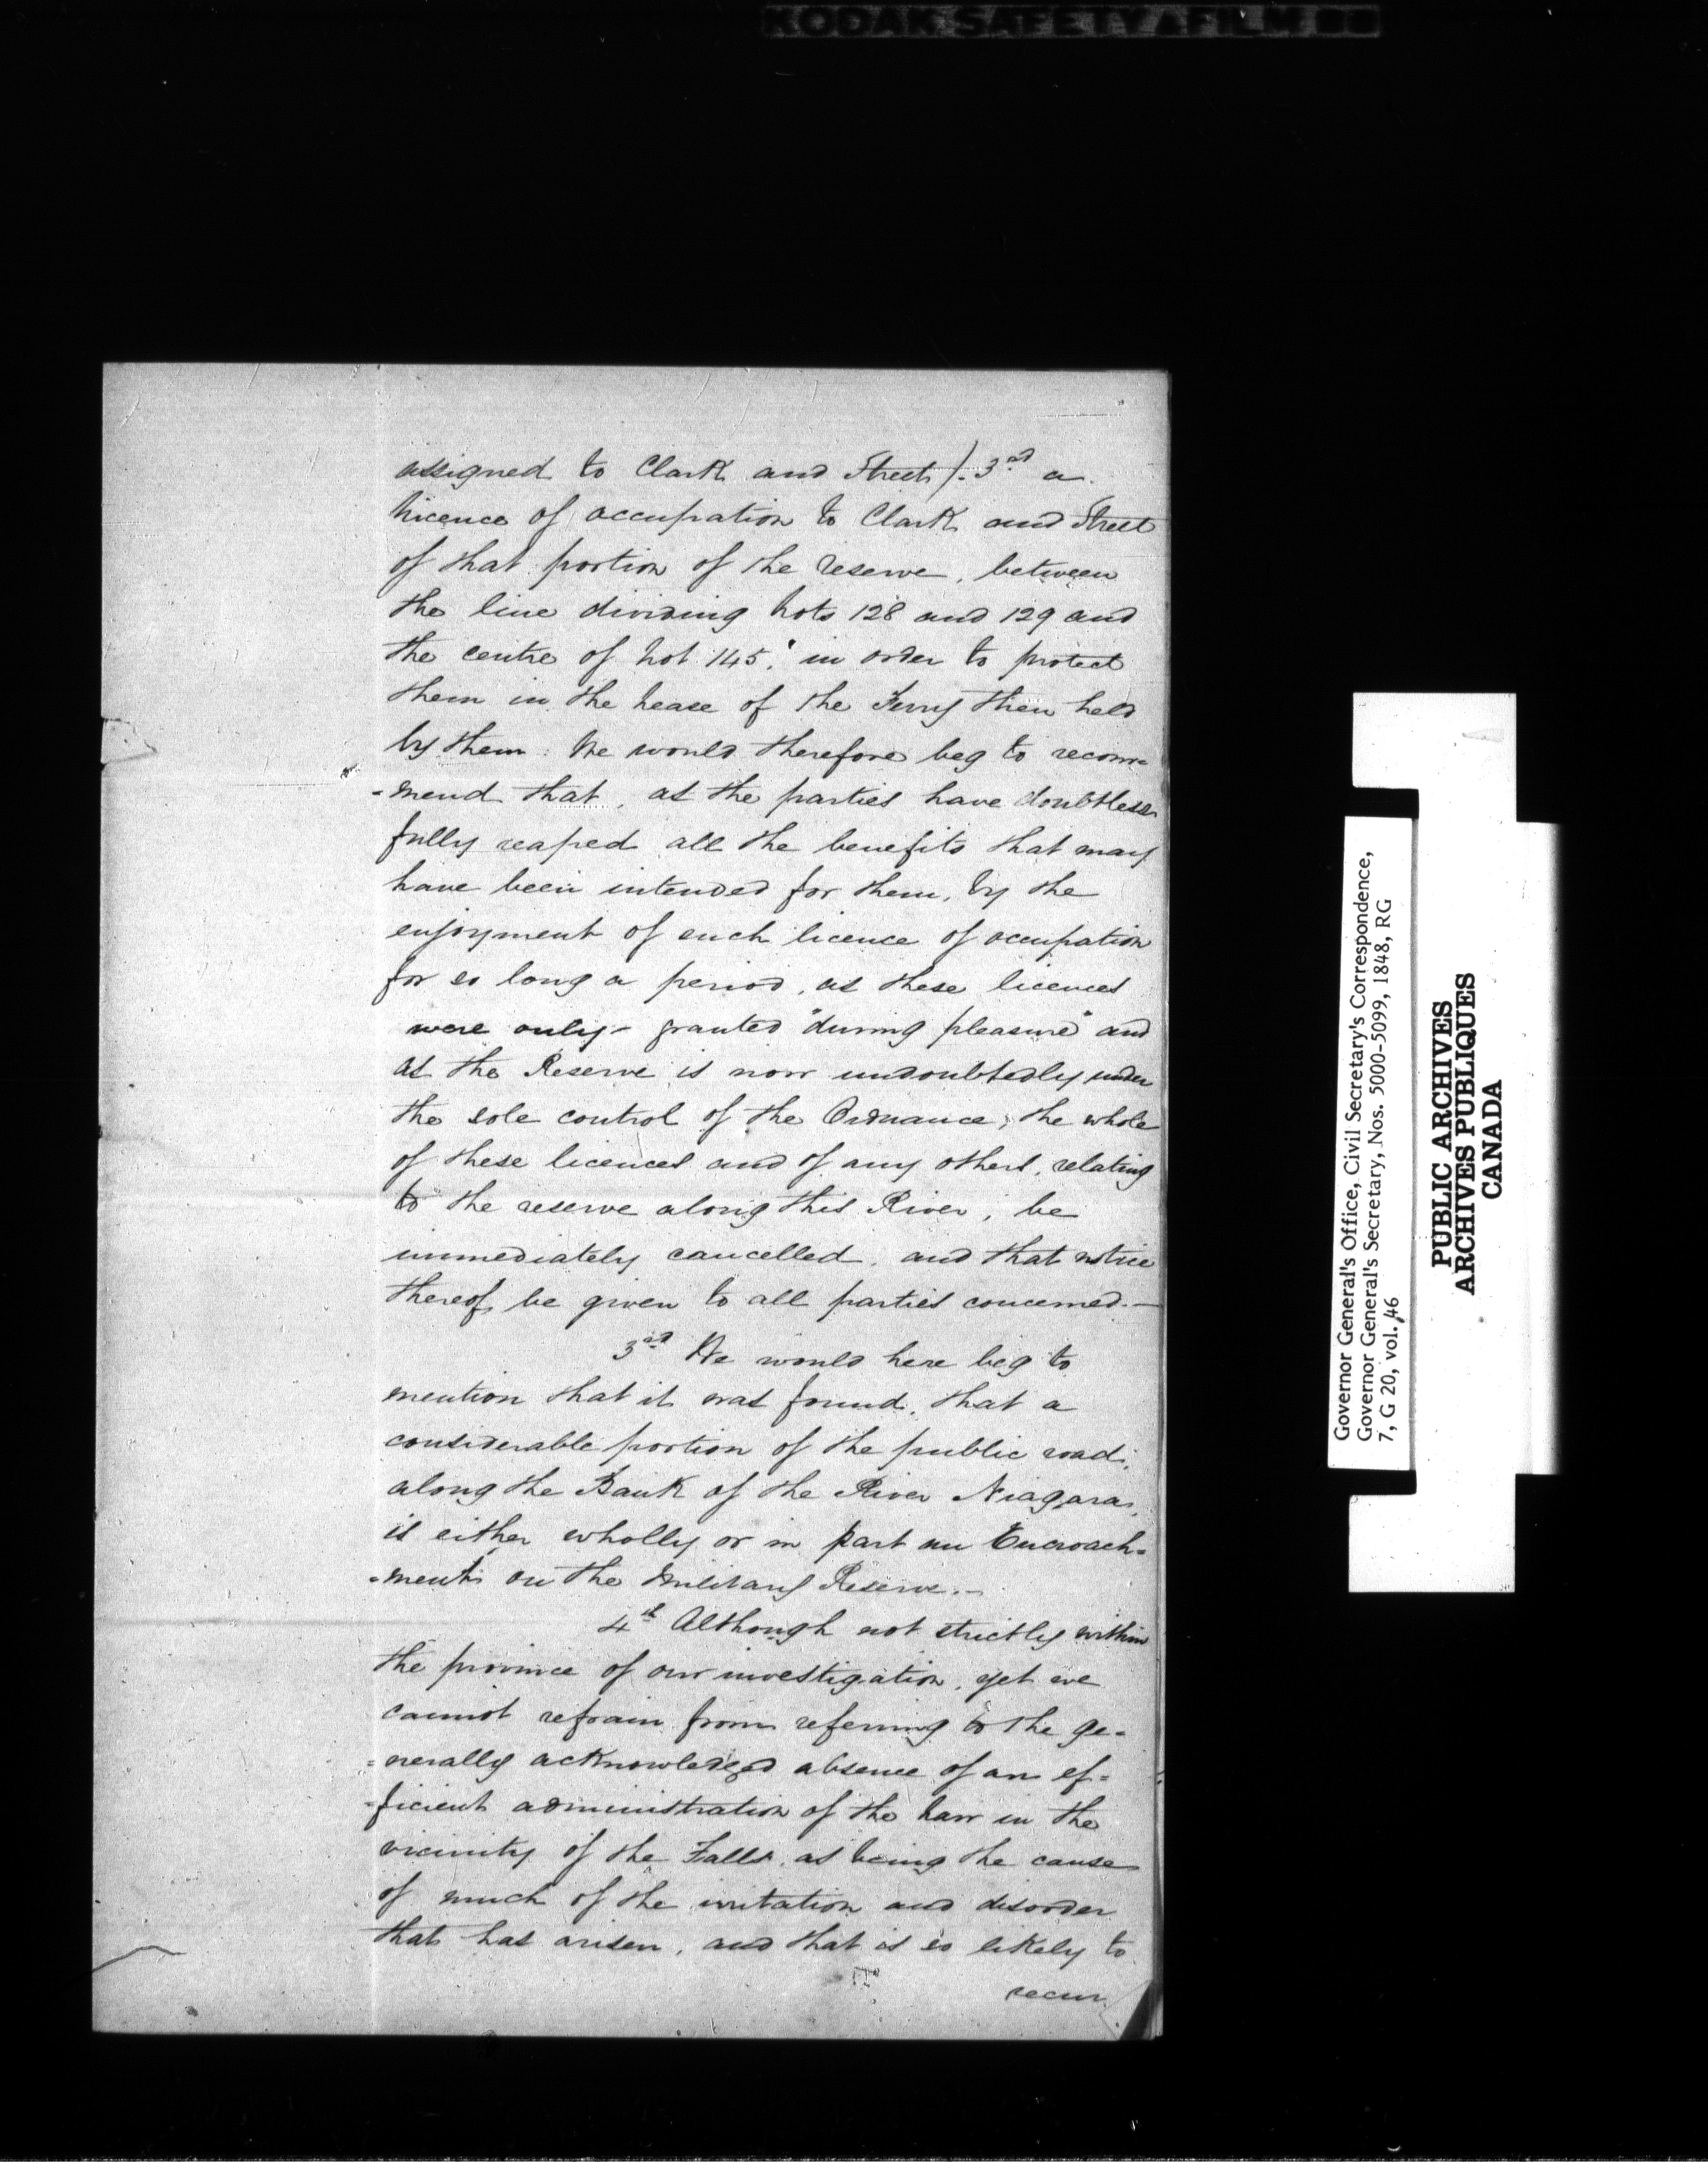 KODAK SAFETY FILM
assigned to Clark and Street). 3rd a
Licence of occupation to Clark and Street
of that portion of the reserve, between
the line dividing Lots 128 and 129 and
the centre of Lot 145, "in order to protect
them in the Lease of the Ferry then held
by them: We would therefore beg to recom=
=mend that, as the parties have doubtless
fully reaped all the benefits that may
have been intended for them, by the
enjoyment of such licence of occupation
for so long a period, as these licences
were only granted "during pleasure" and
as the Reserve is now undoubtedly under
the sole control of the Ordnance; the whole
of these licences and of any others, relating
to the reserve along this River, be
immediately cancelled, and that notice
thereof be given to all parties concerned.—
3rd We would here beg to
mention that it was found, that a
considerable portion of the public road,
along the Bank of the River Niagara,
is either wholly or in part an Encroach=
=ment on the Military Reserve.—
4th Although not strictly within
the province of our investigation, yet we
cannot refrain from referring to the ge=
=nerally acknowledged absence of an ef=
=ficient administration of the Law in the
vicinity of the Falls, as being the cause
of much of the irritation and disorder
that has arisen, and that is so likely to
recur
Governor General's Office, Civil Secretary's Correspondence,
Governor General's Secretary, Nos. 5000-5099, 1848, RG
7, G 20, vol. 46
PUBLIC ARCHIVES
ARCHIVES PUBLIQUES
CANADA